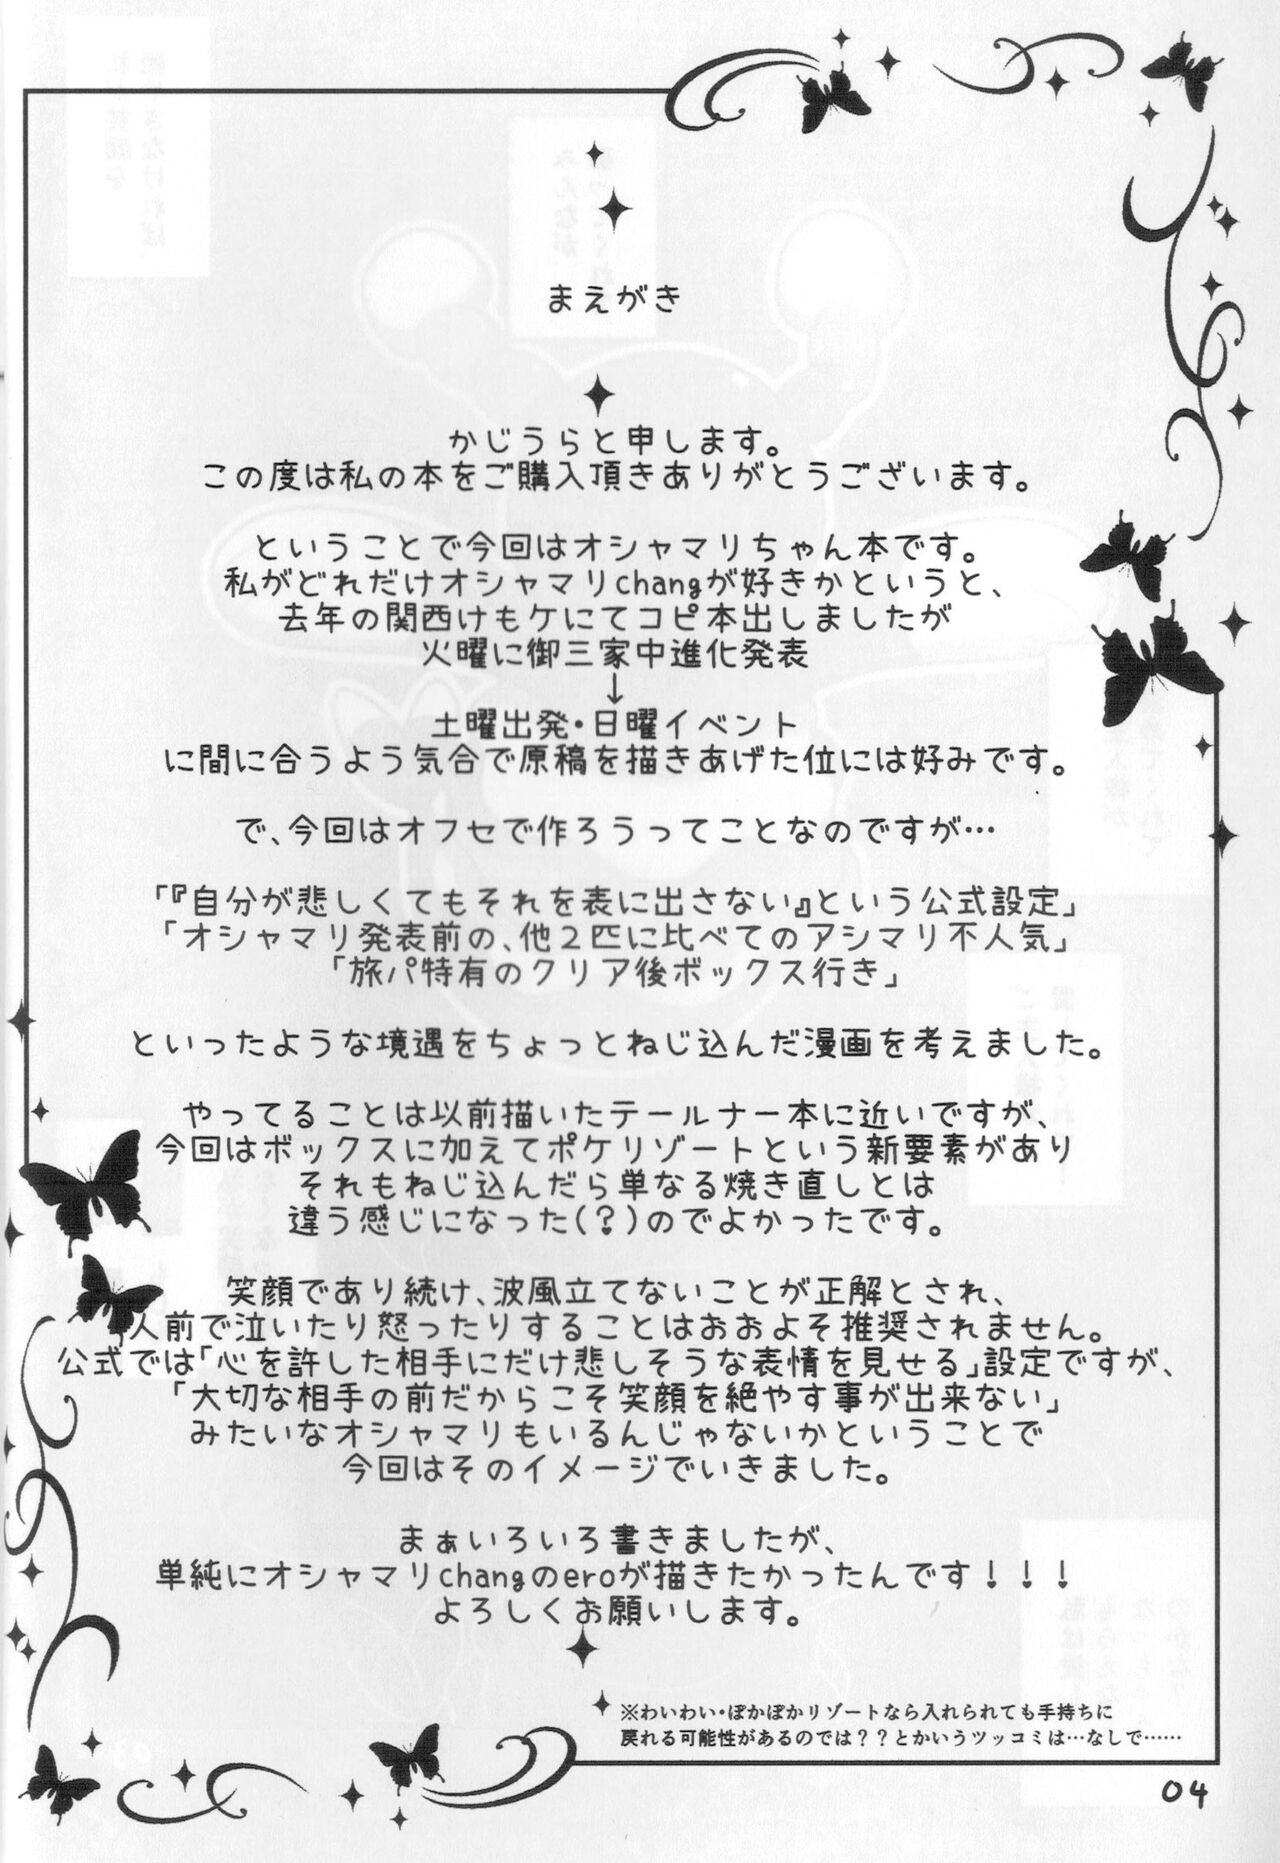 まえがき
かじうらと申します。
この度は私の本をご購入頂きありがとうございます。
ということで今回はオシャマリちゃん本です。
私がどれだけオシャマリchangが好きかというと、
去年の関西けもケにてコピ本出しましたが
火曜に御三家中進化発表
↓
土曜出発・日曜イベント
に間に合うよう気合で原稿を描きあげた位には好みです。
で、今回はオフセで作ろうってことなのですが…
「『自分が悲しくてもそれを表に出さない』という公式設定」
「オシャマリ発表前の、他２匹に比べてのアシマリ不人気」
「旅パ特有のクリア後ボックス行き」
といったような境遇をちょっとねじ込んだ漫画を考えました。
やってることは以前描いたテールナー本に近いですが、
今回はボックスに加えてポケリゾートという新要素があり
それもねじ込んだら単なる焼き直しとは
違う感じになった(？)のでよかったです。
笑顔であり続け、波風立てないことが正解とされ、
人前で泣いたり怒ったりすることはおおよそ推奨されません。
公式では「心を許した相手にだけ悲しそうな表情を見せる」設定ですが、
「大切な相手の前だからこそ笑顔を絶やす事が出来ない」
みたいなオシャマリもいるんじゃないかということで
今回はそのイメージでいきました。
まぁいろいろ書きましたが、
単純にオシャマリchangのeroが描きたかったんです！！！
よろしくお願いします。
※わいわい・ぽかぽかリゾートなら入れられても手持ちに
戻れる可能性があるのでは？？とかいうツッコミは…なしで……
04